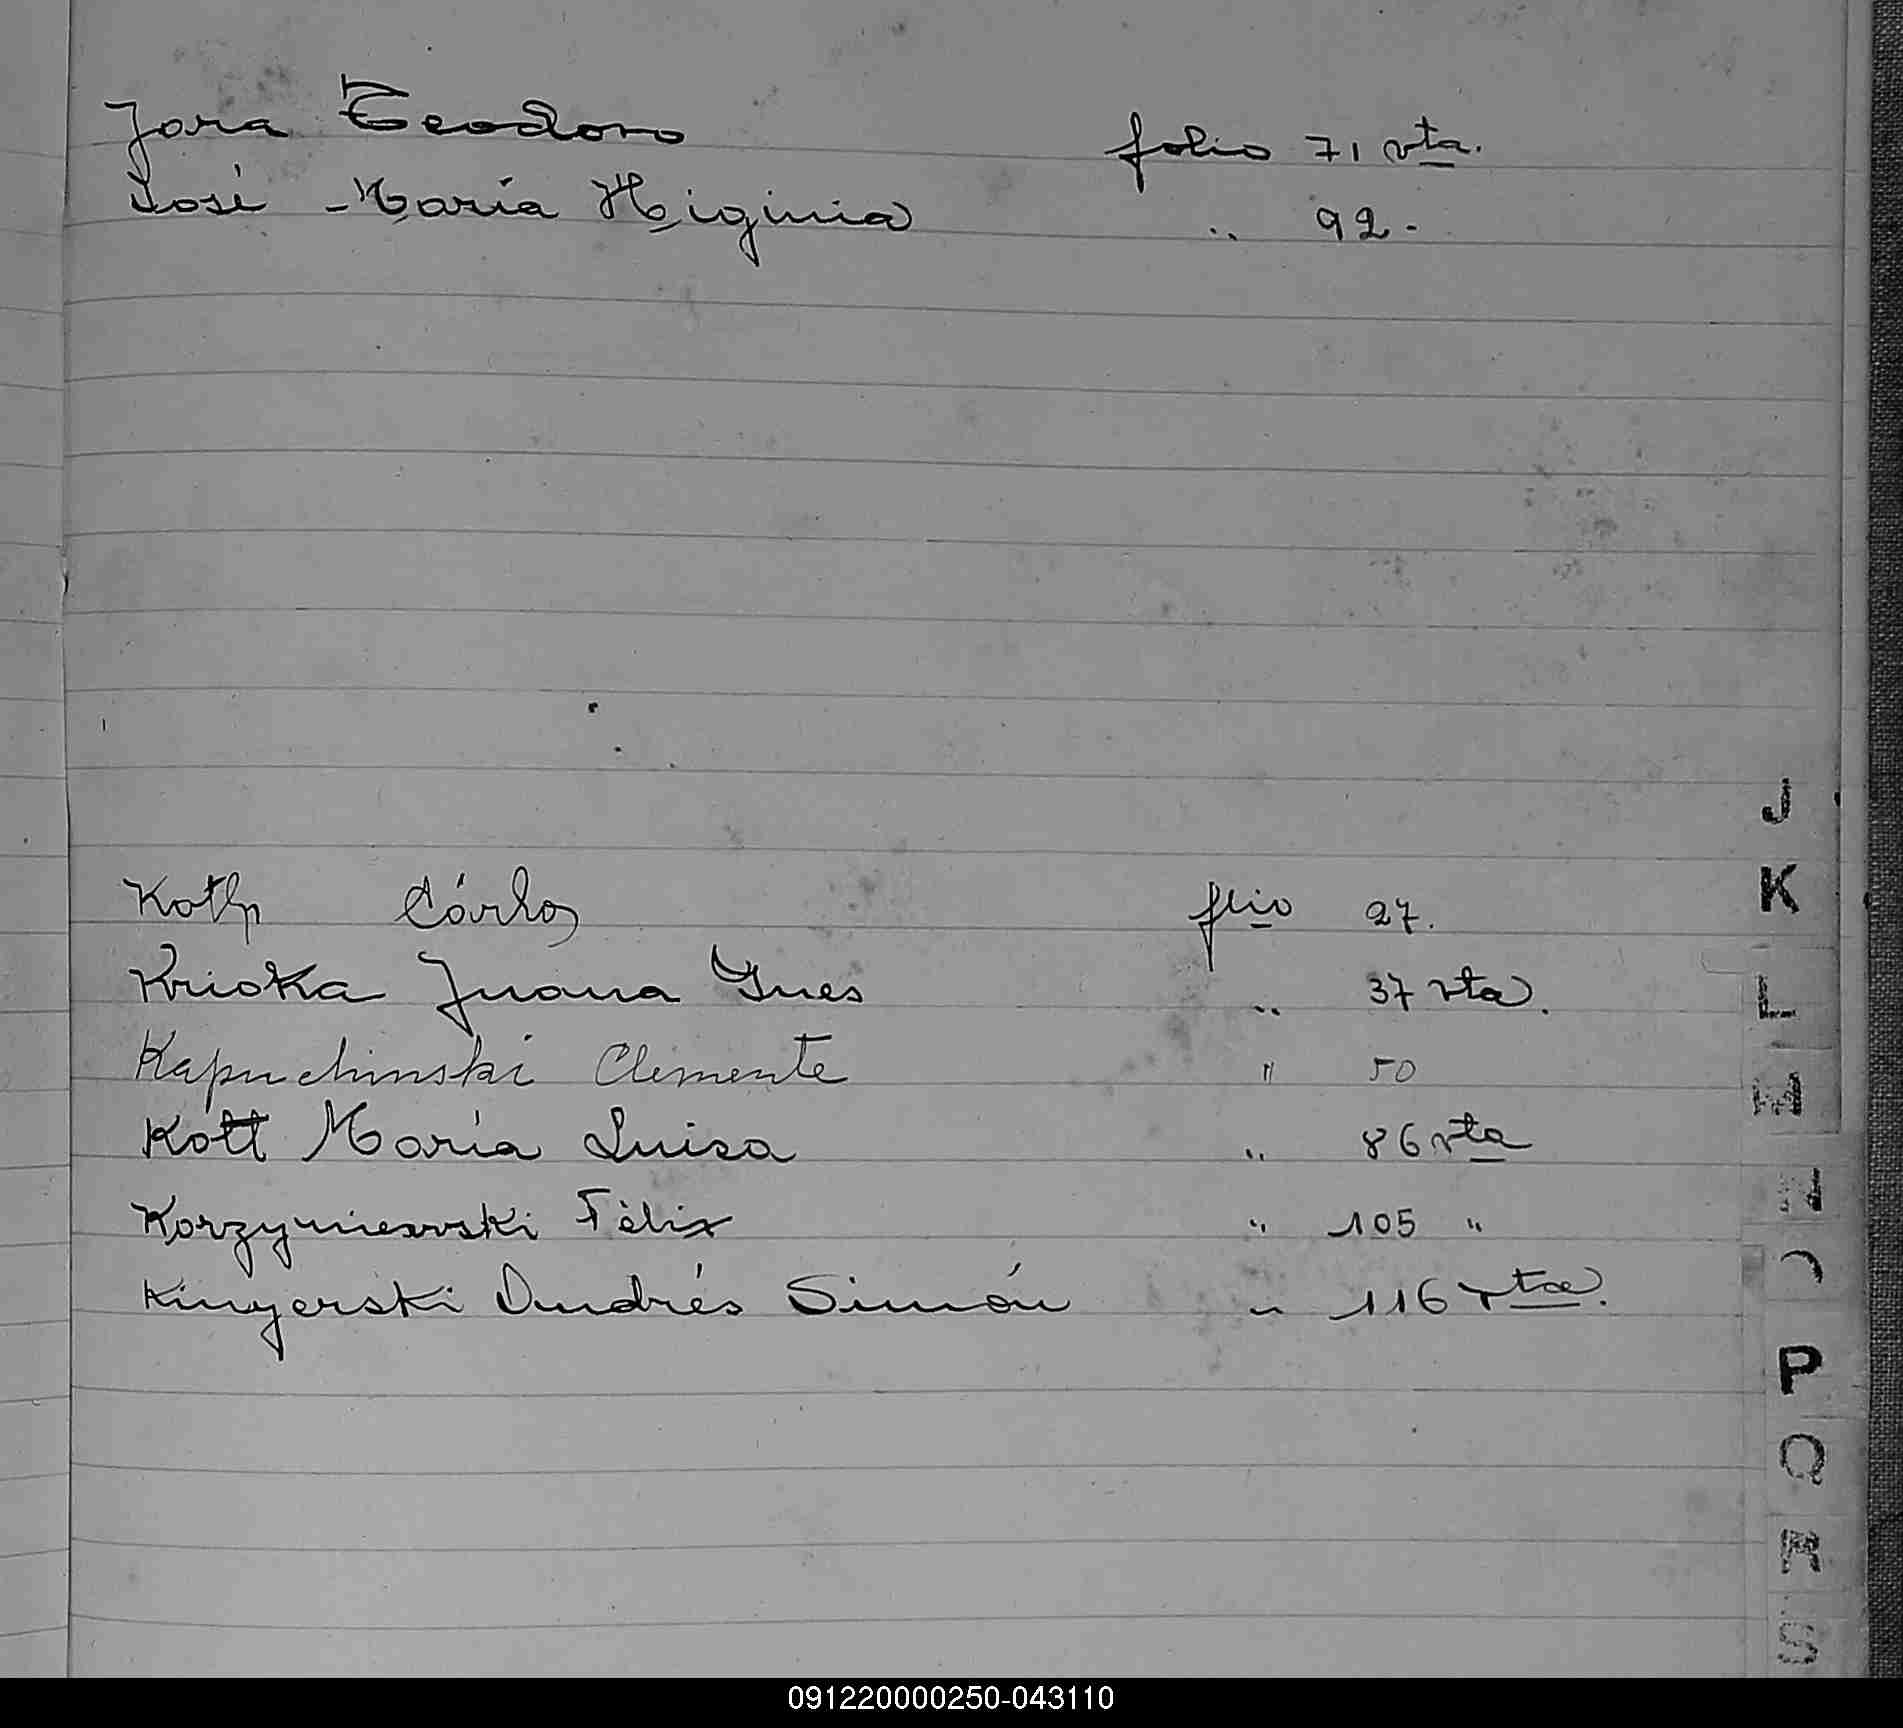 Jara Teodoro folio 71 vta.
José María Higinia " 92.-
J
K
Kotlp Cárlos flio 27.
Krioka Juana Ynes " 37 vta.
L
Kapuchinski Clemente " 50
M
Kott María Luisa " 86 vta
Korzyniewski Félix " 105 "
Kinyerski Andrés Simón " 116 vta.
P
Q
R
S
091220000250-043110